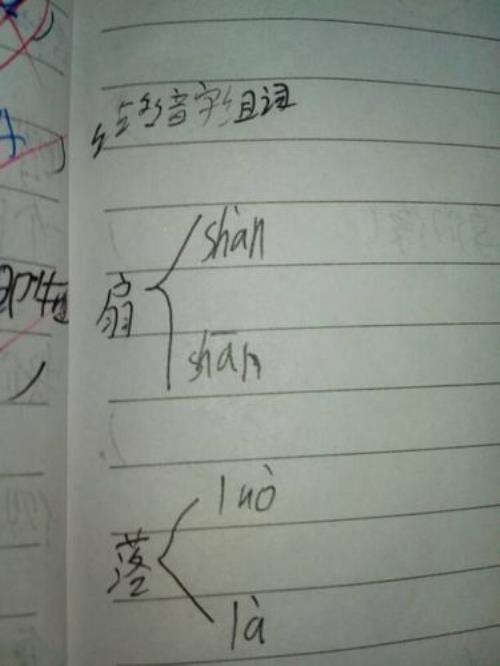 给多音字组词
shàn
扇
shān
luò
落
là